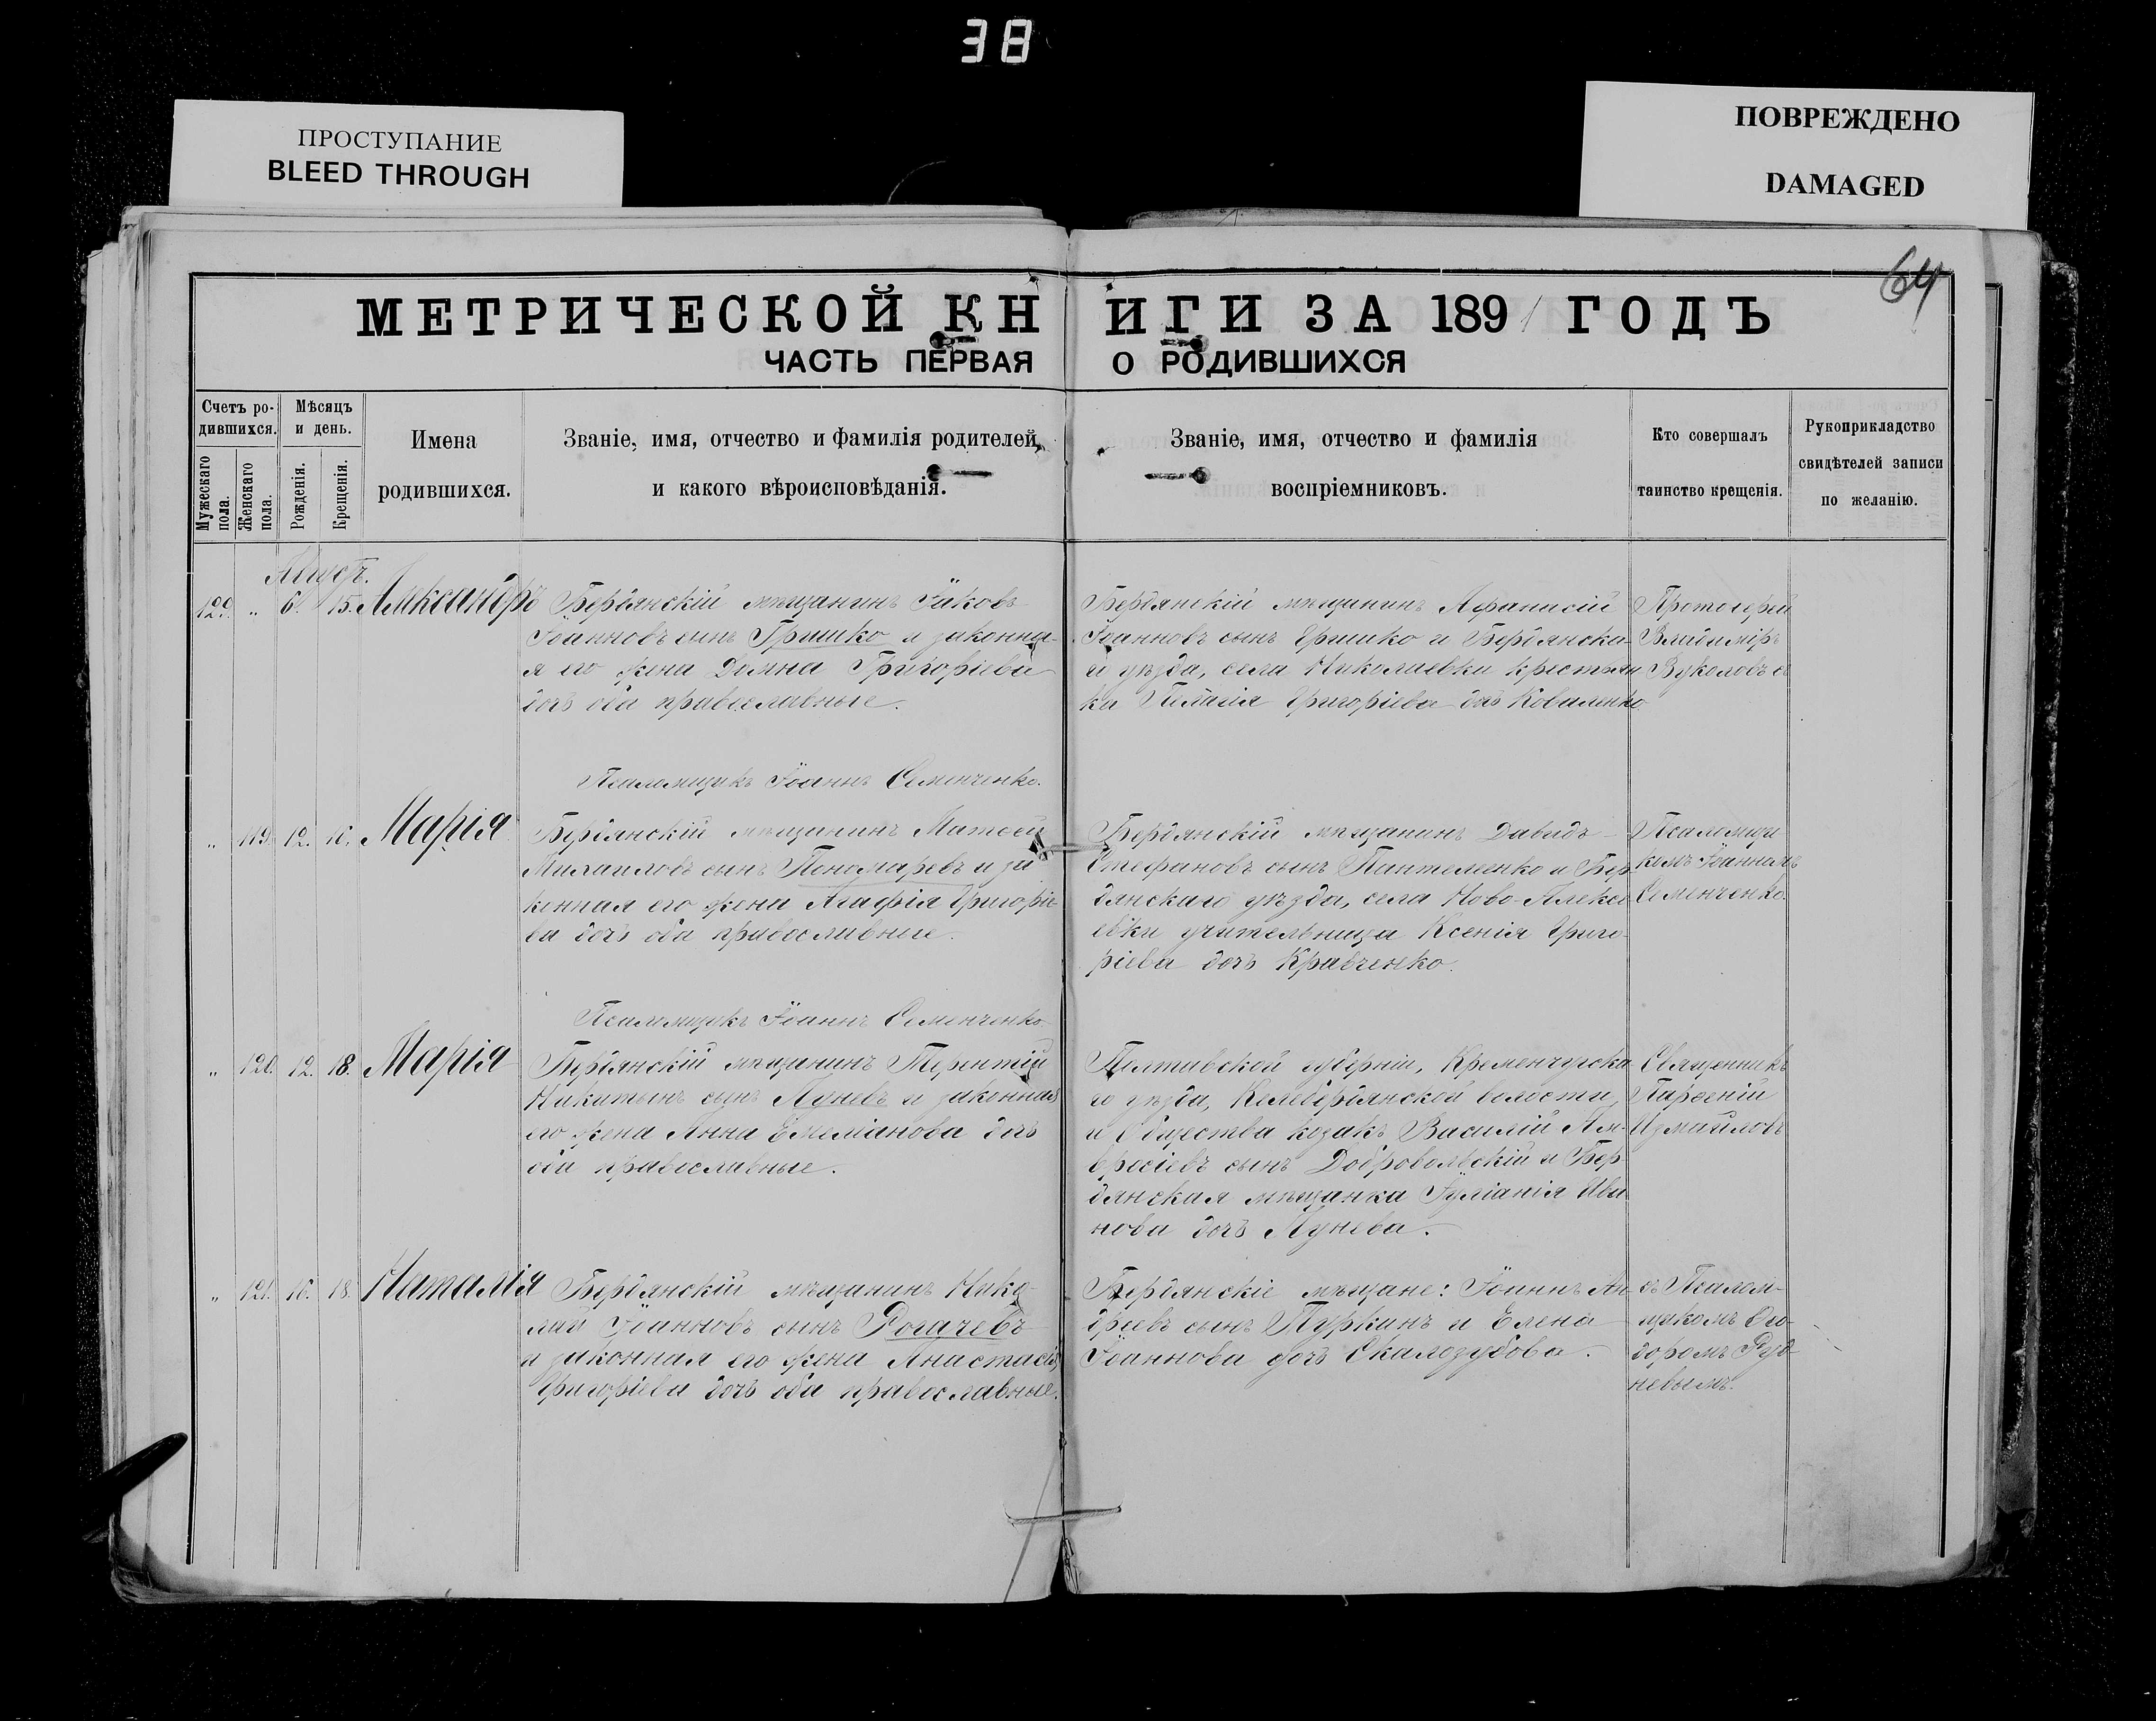 38
ПРОСТУПАНИЕ
BLEED THROUGH
ПОВРЕЖДЕНО
DAMAGED
64
МЕТРИЧЕСКОЙ КНИГИ ЗА 1891 ГОДЪ
ЧАСТЬ ПЕРВАЯ О РОДИВШИХСЯ
Счетъ ро-
дившихся.
Мужескаго
пола.
Женскаго
пола.
Мѣсяцъ
и день.
Рожденія.
Крещенія.
Имена
родившихся.
Званіе, имя, отчество и фамилія родителей,
и какого вѣроисповѣданія.
Званіе, имя, отчество и фамилія
воспріемниковъ.
Кто совершалъ
таинство крещенія.
Рукоприкладство
свидѣтелей записи
по желанію.
Августъ.
129. „ 6. 15. Александръ
Бердянскій мѣщанинъ Іаковъ
Іоанновъ сынъ Гришко и законна-
я его жена Домна Григоріева
дочъ оба православные.
Бердянскій мѣщанинъ Афанасій
Іоанновъ сынъ Гришко и Бердянска-
го уѣзда, села Николаевки крестьян-
ка Пелагія Григоріева дочъ Коваленко
Протоіерей
Владиміръ
Вуколовъ съ
Псаломщикъ Іоаннъ Семенченко.
„ 119. 12. 16. Марія
Бердянскій мѣщанинъ Матѳей
Михаиловъ сынъ Пономаревъ и за
конная его жена Агафія Григоріе-
ва дочъ оба православные.
Бердянскій мѣщанинъ Давидъ
Стефановъ сынъ Пантеленко и Бер-
дянскаго уѣзда, села Ново-Алексе
евки учительница Ксенія Григо-
ріева дочъ Кравченко.
Псаломщи
комъ Іоанномъ
Семенченко.
Псаломщикъ Іоаннъ Семенченко
„ 120. 12. 18. Марія
Бердянскій мѣщанинъ Терентій
Никитинъ сынъ Луневъ и законная
его жена Анна Емеліанова дочъ
оба православные.
Полтавской губерніи, Кременчугска
го уѣзда, Келебердянской волости,
и общества козакъ Василій Ам-
вросіевъ сынъ Добровольскій и Бер
дянская мѣщанка Іуліанія Ива
нова дочъ Лунева.
Священникъ
Парѳеній
Измаиловъ
„ 121. 16. 18. Наталія
Бердянскій мѣщанинъ Нико-
лай Іоанновъ сынъ Рогачевъ
и законная его жена Анастасія
Григоріева дочъ оба православные.
Бердянскіе мѣщане: Іоаннъ Ан-
дреевъ сынъ Туркинъ и Елена
Іоаннова дочъ Скалозубова.
съ Псалом-
щикомъ Ѳео-
доромъ Руд-
невымъ.